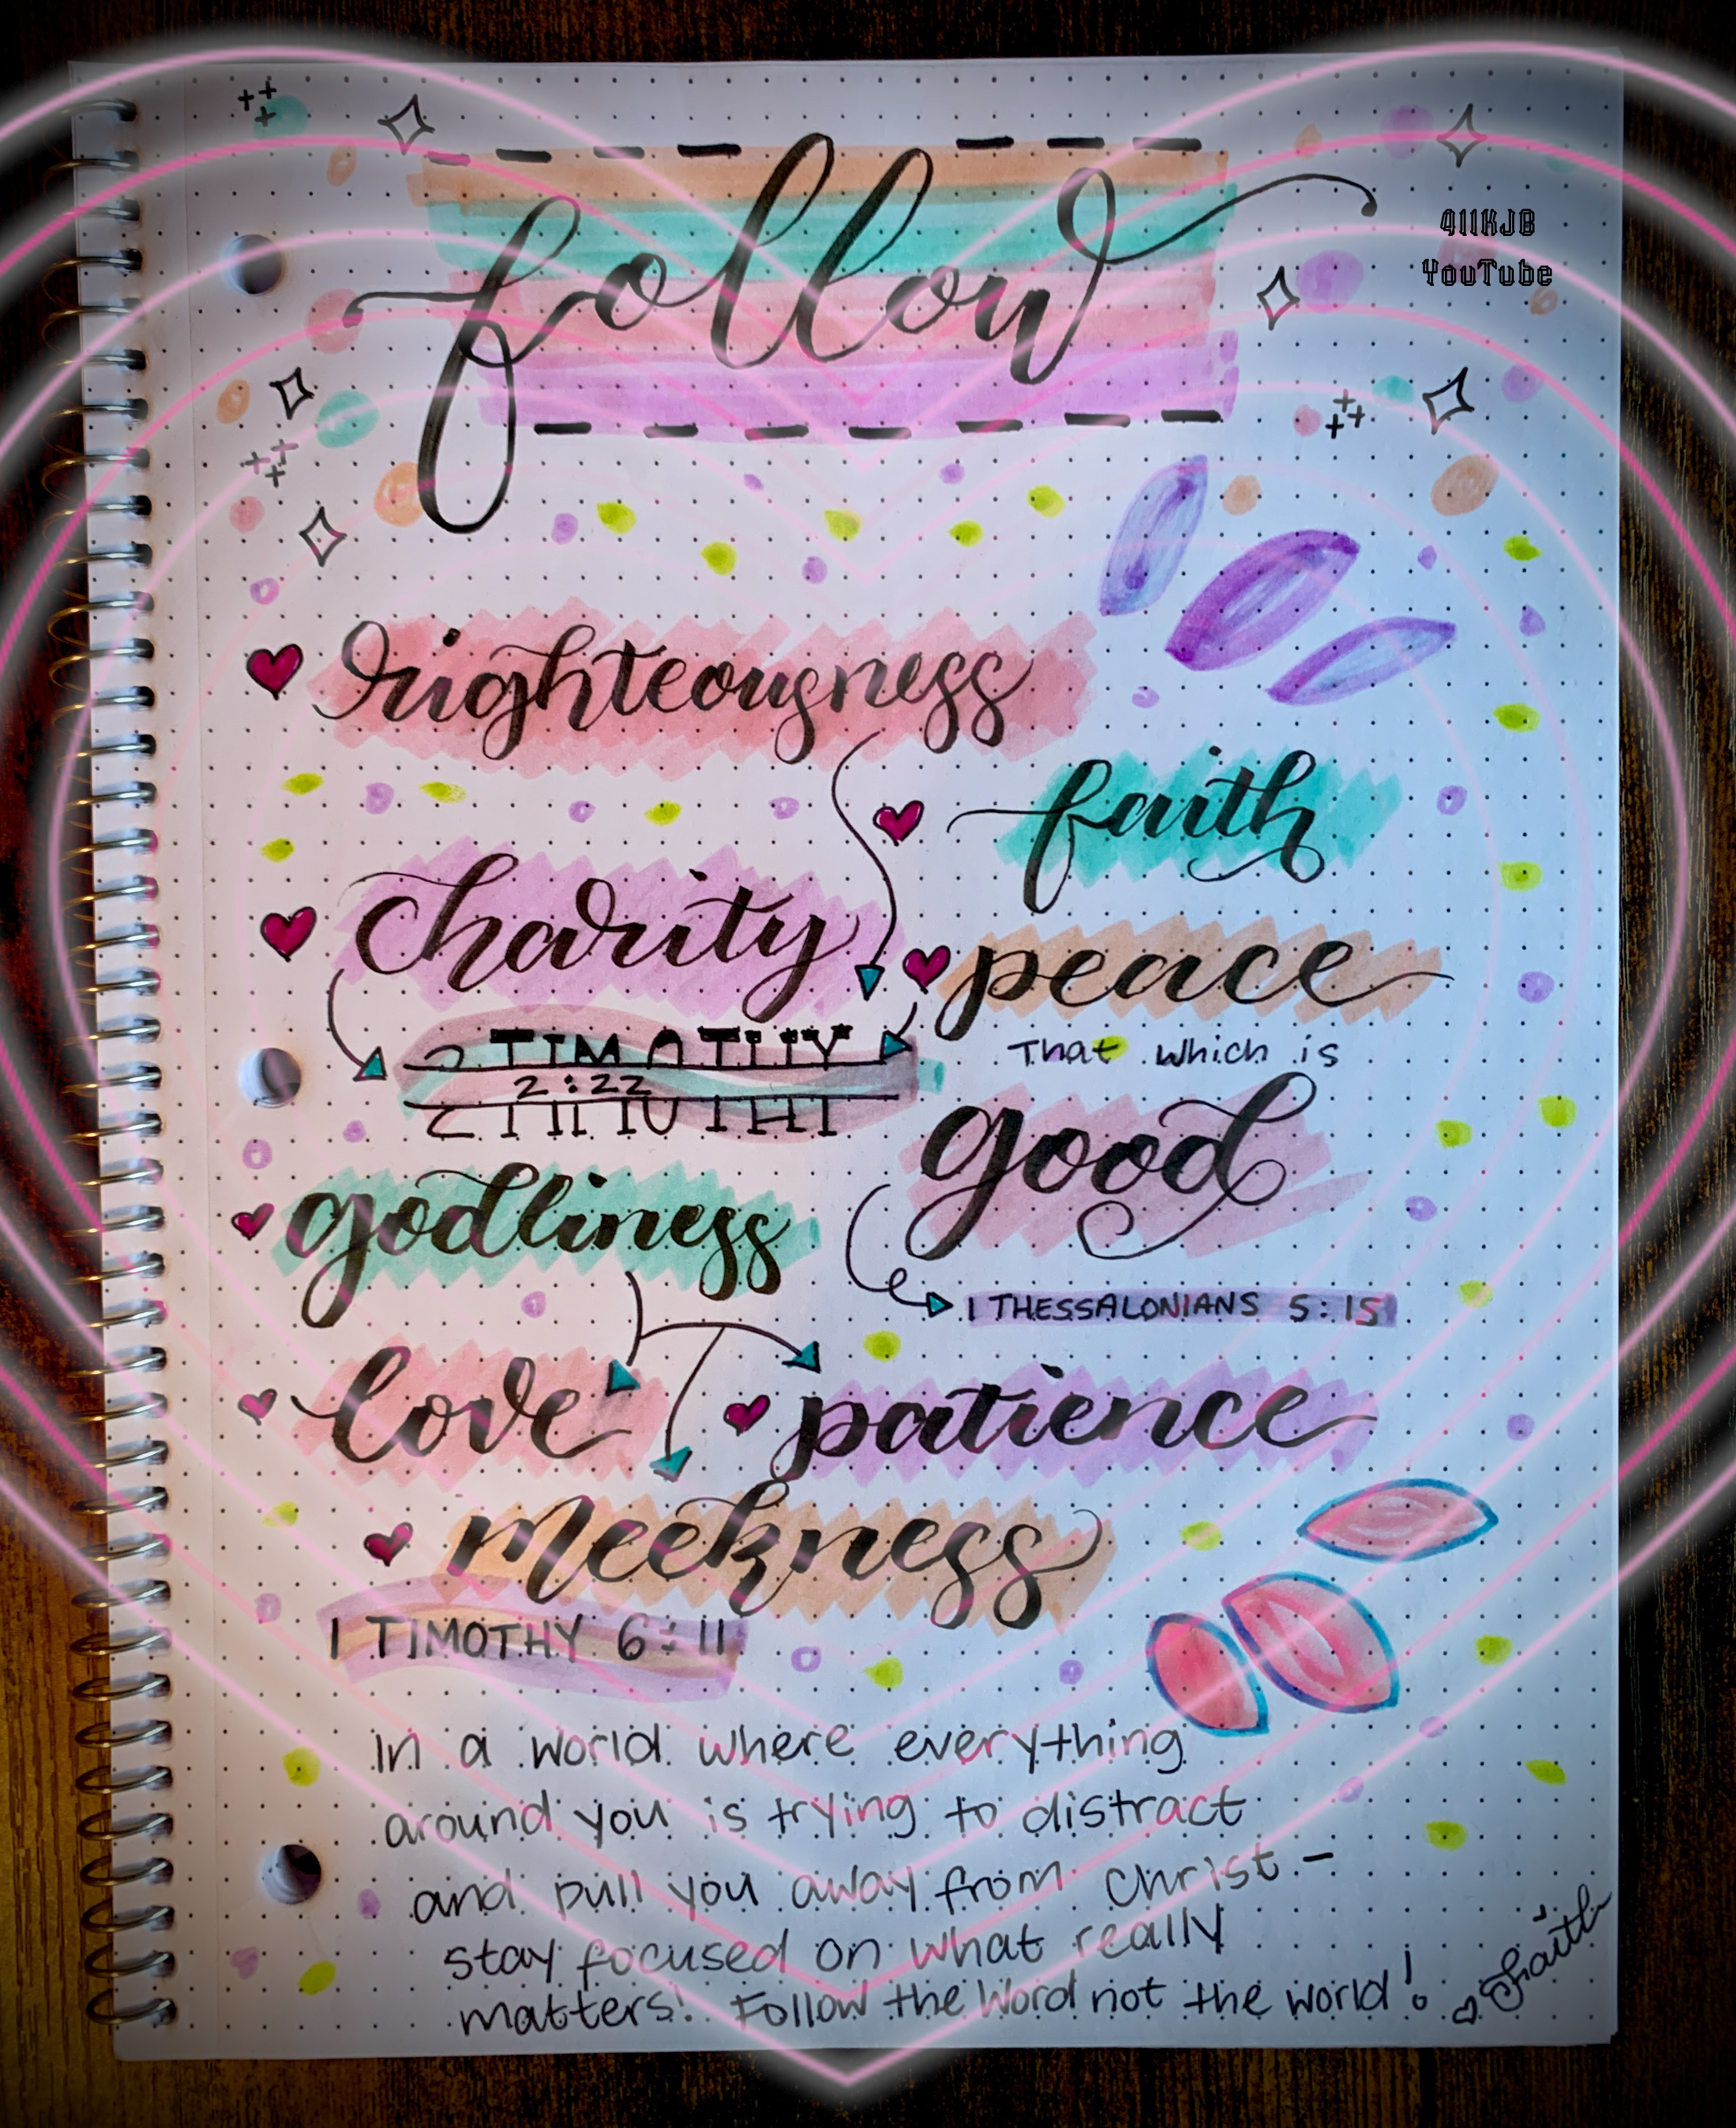 follow
411KJB
YouTube
righteousness
faith
charity
peace
2 TIMOTHY
2:22
That which is
good
godliness
1 THESSALONIANS 5:15
love
patience
meekness
1 TIMOTHY 6:11
In a world where everything
around you is trying to distract
and pull you away from Christ -
stay focused on what really
matters! Follow the Word not the world!
Faith